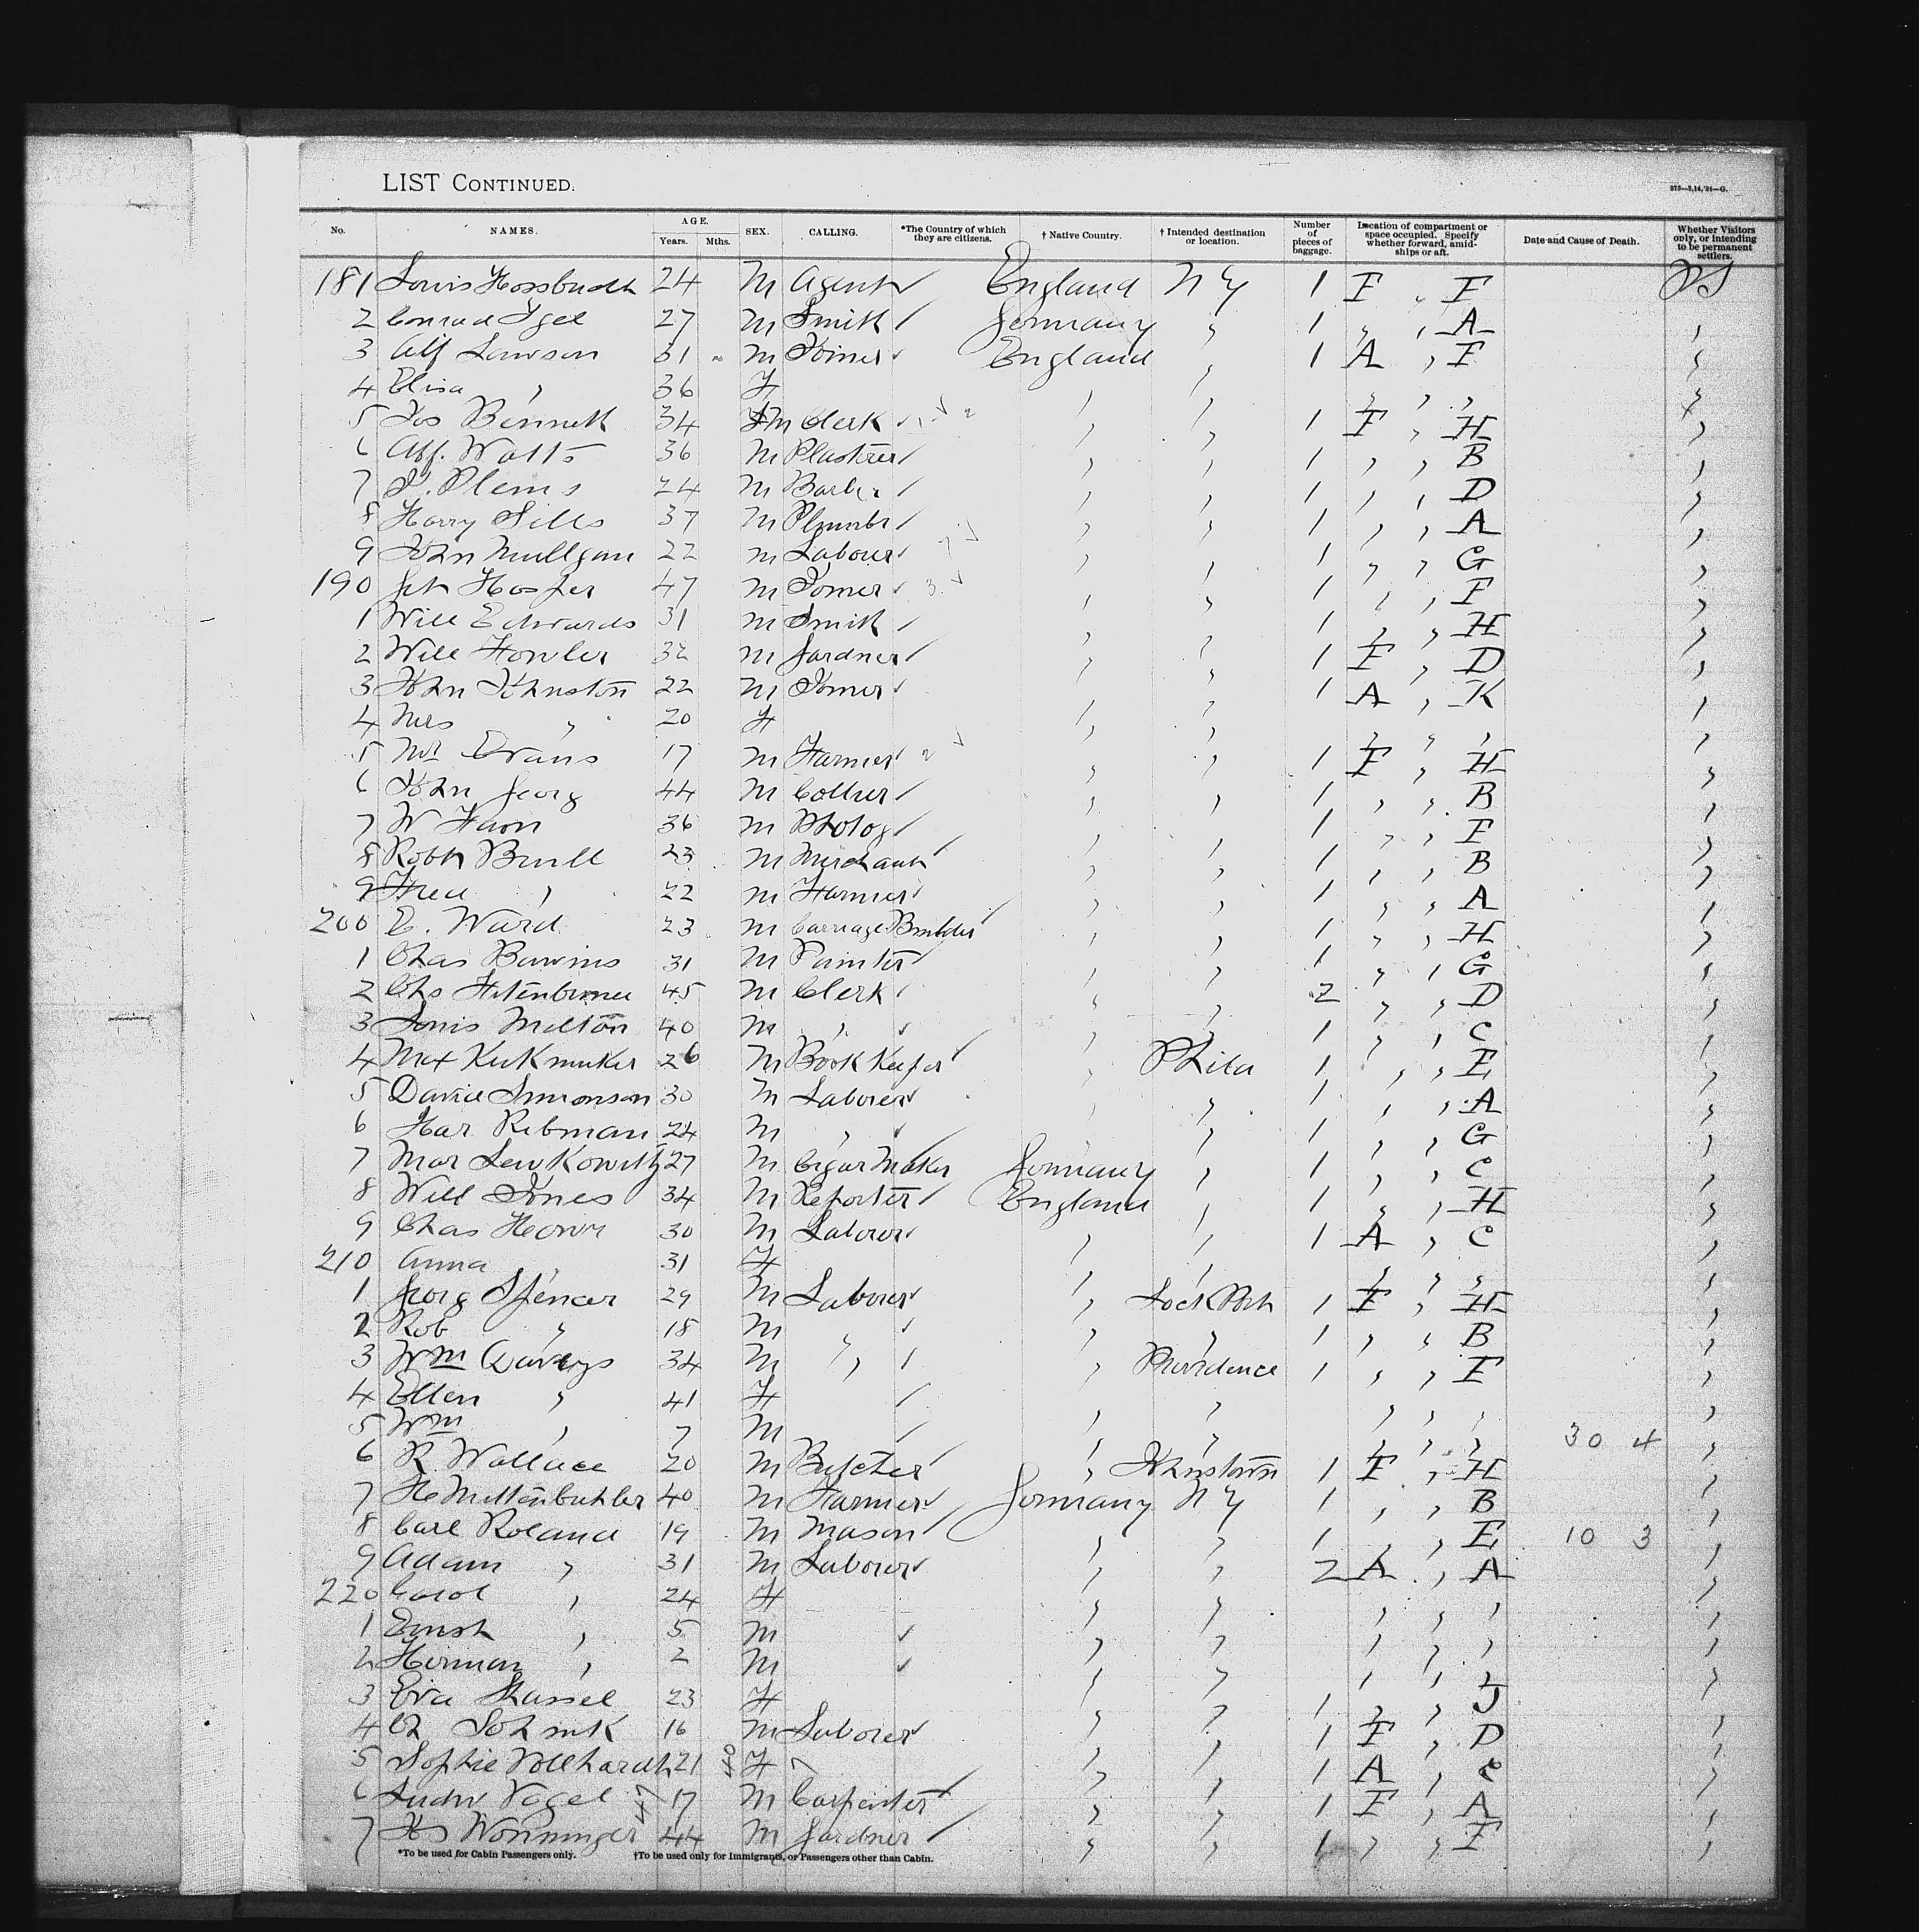 LIST CONTINUED.
273—3,14,'91—G.
No. NAMES. AGE. Years. Mths. SEX. CALLING. *The Country of which they are citizens. † Native Country. † Intended destination or location. Number of pieces of baggage. Location of compartment or space occupied. Specify whether forward, amidships or aft. Date and Cause of Death. Whether Visitors only, or intending to be permanent settlers.
181 Louis 24 M Agent England NY 1 F , F PS
2 Conrad Igel 27 M Smith Germany , 1 , , A ,
3 Alf Lawson 31 M Joiner England , 1 A , F ,
4 Elisa , 36 F , , , , , ,
5 Jos Bennett 34 M Clerk , , 1 F , H ,
6 Alf. Watts 36 M Plasterer , , 1 , , B ,
7 J. Plems 24 M Barber , , 1 , , D ,
8 Harry Sills 37 M Plumber , , 1 , , A ,
9 John Mullgan 22 M Labourer , , 1 , , G ,
190 47 M Joiner , , 1 , , F ,
1 Will Edwards 31 M Smith , , 1 , , H ,
2 Will Fowler 32 M Gardner , , 1 F , D ,
3 John Johnston 22 M Joiner , , 1 A , K ,
4 Mrs , 20 F , , , , , ,
5 Mr Evans 17 M Farmer , , 1 F , H ,
6 John Georg 44 M Collier , , 1 , , B ,
7 W 36 M Photog , , 1 , , F ,
8 Robt Brull 23 M Merchant , , 1 , , B ,
9 Fred , 22 M Farmer , , 1 , , A ,
200 E. Ward 23 M Carriage Builder , , 1 , , H ,
1 Chas 31 M Painter , , 1 , , G ,
2 Chs 45 M Clerk , , 2 , , D ,
3 Louis Melton 40 M , , , 1 , , C ,
4 Max 26 M Book Keeper , Phila 1 , , E ,
5 David Simonson 30 M Laborer , , 1 , , A ,
6 Har Ribman 24 M , , , 1 , , G ,
7 Mar Lewkowitz 27 M Cigar Maker Germany , 1 , , C ,
8 Will Jones 34 M Reporter England , 1 , , H ,
9 Chas 30 M Laborer , , 1 A , C ,
210 Anna , 31 F , , , , , ,
1 Georg Spencer 29 M Laborer , Lock Port 1 F , H ,
2 Rob , 18 M , , , 1 , , B ,
3 Wm Daveys 34 M , , Providence 1 , , F ,
4 Ellen , 41 F , , , , , ,
5 Wm , 7 M , , , , , 30 4 ,
6 R Wallace 20 M Butcher , Johnstown 1 F , H ,
7 He Mittenbuhler 40 M Farmer Germany NY 1 , , B ,
8 Carl Roland 19 M Mason , , 1 , , E 10 3 ,
9 Adam , 31 M Laborer , , 2 A , A ,
220 Carol , 24 F , , , , , ,
1 Ernst , 5 M , , , , , ,
2 Herman , 2 M , , , , , ,
3 Eva 23 F , , 1 , , J ,
4 Ch Schink 16 M Laborer , , 1 F , D ,
5 Sophie Vollhardt 21 F , , 1 A , C ,
6 Ludw Vogel 17 M Carpenter , , 1 F , A ,
7 Wonninger 44 M Gardner , , 1 , , F ,
*To be used for Cabin Passengers only. †To be used only for Immigrants, or Passengers other than Cabin.